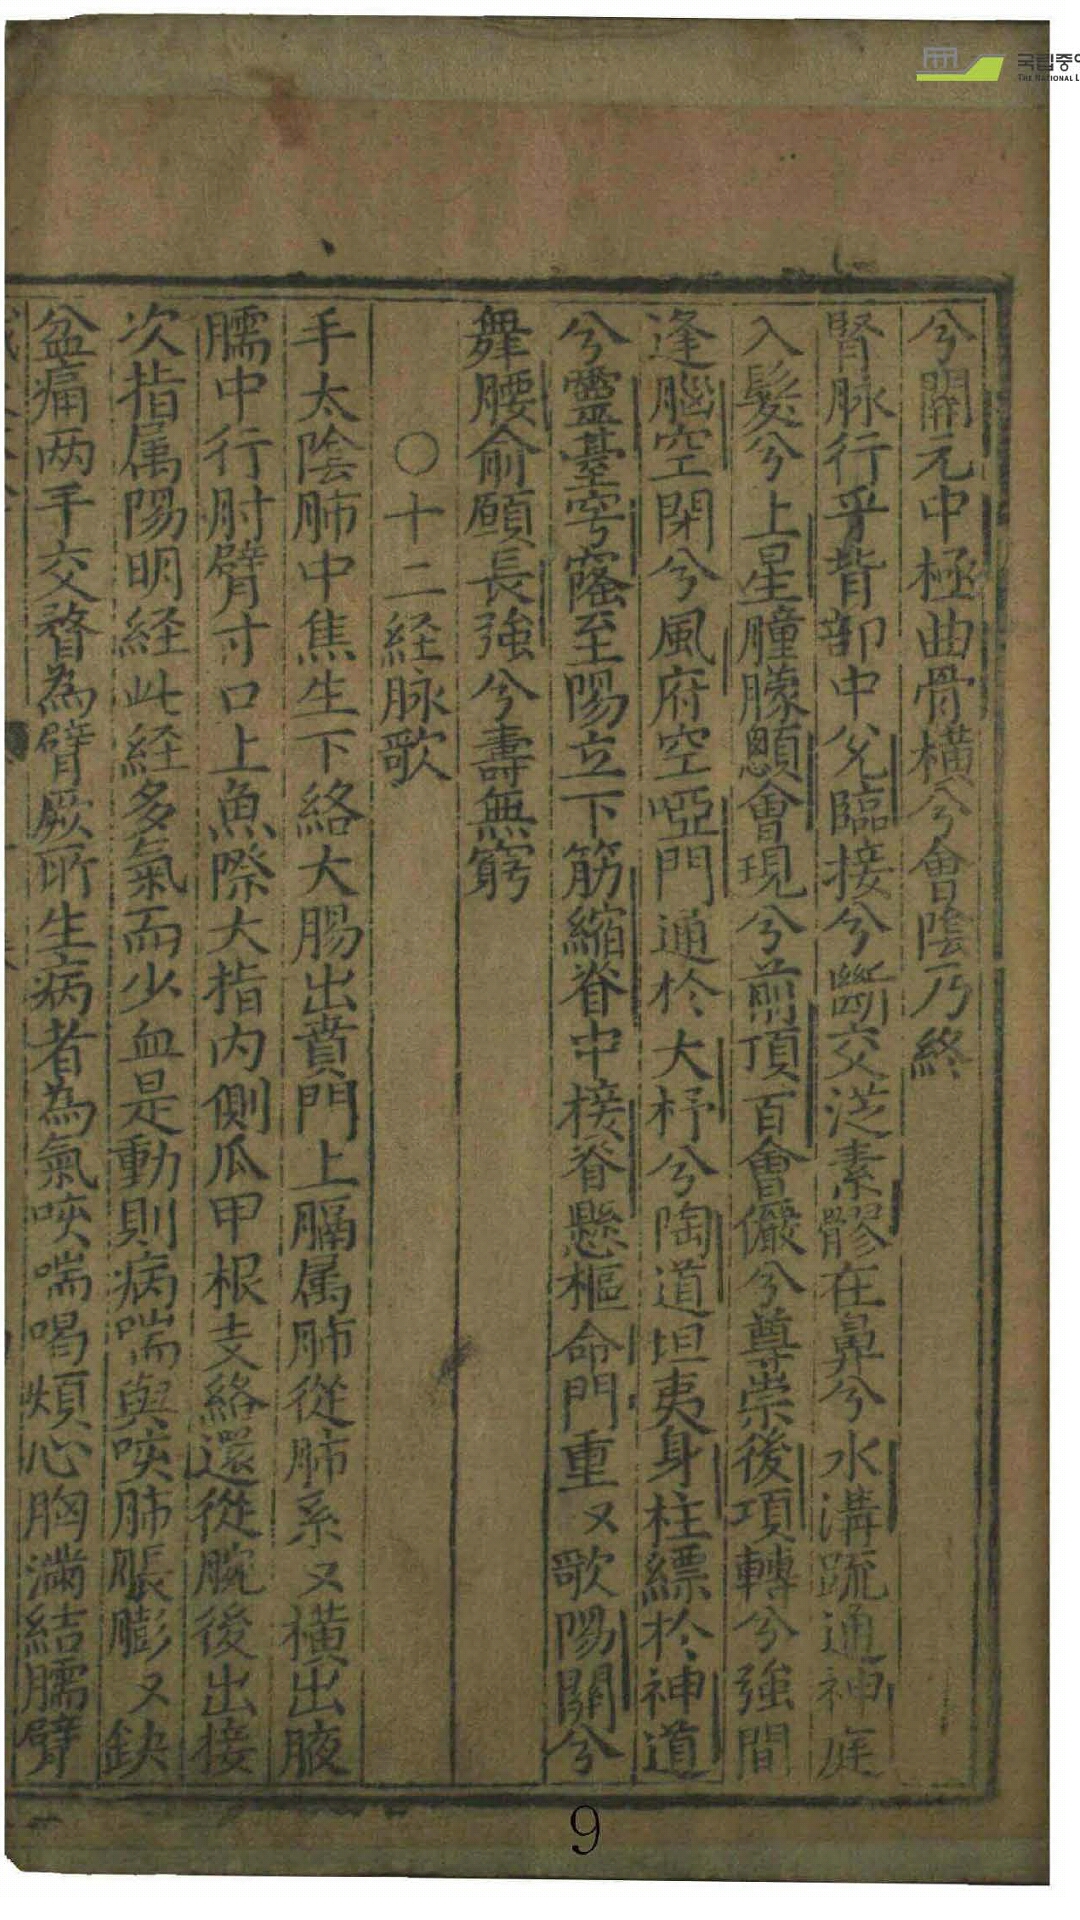 兮關元中極曲骨橫兮會陰乃終
腎脉行乎背部中兊臨接兮斷交莣素髎在鼻兮水溝疏通神庭
入髮兮上星瞳朦顖會現兮前頂百會儼兮尊崇後項轉兮強間
逢腦空閉兮風府空啞門通於大杼兮陶道坦夷身柱縹於神道
兮靈臺穹窿至陽立下筋縮脊中接脊懸樞命門重又歌陽關兮
舞腰俞願長強兮壽無窮
○十二経脉歌
手太陰肺中焦生下絡大腸出賁門上膈属肺從肺系又橫出腋
臑中行肘臂寸口上魚際大指内側瓜甲根支絡還從腕後出接
次指属陽明経此経多氣而少血是動則病喘與咳肺脹膨又缺
盆痛两手交瞀為臂厥所生病者為氣咳喘喝煩心胸滿結臑臂
국립중
THE NATIONAL L
9